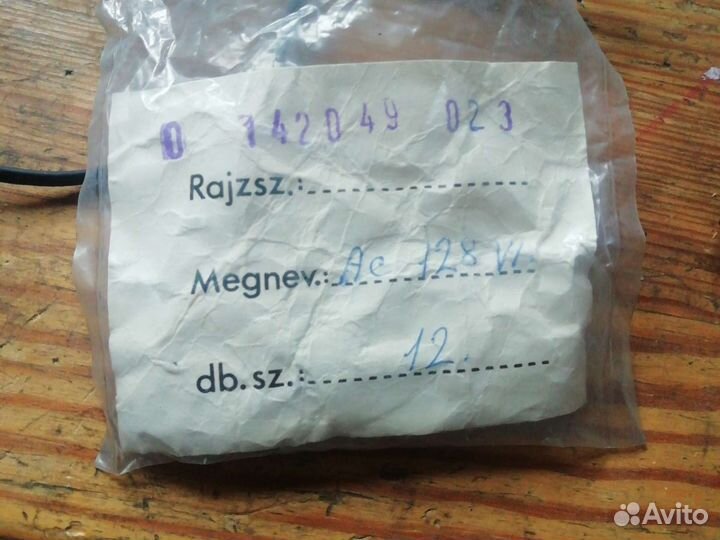 0 142049 023
Rajzsz.:
Megnev.: Ac 128 VI.
db.sz.: 12.
Avito